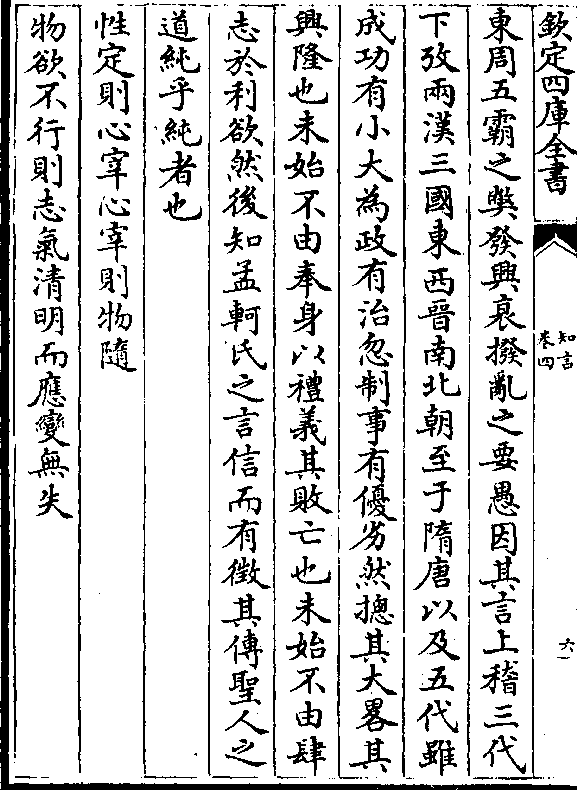 欽定四庫全書
知言
卷四
六
東周五霸之弊發興衰撥亂之要愚因其言上稽三代
下攷兩漢三國東西晉南北朝至于隋唐以及五代雖
成功有小大為政有治忽制事有優劣然摠其大畧其
興隆也未始不由奉身以禮義其敗亡也未始不由肆
志於利欲然後知孟軻氏之言信而有徵其傳聖人之
道純乎純者也
性定則心宰心宰則物隨
物欲不行則志氣清明而應變無失